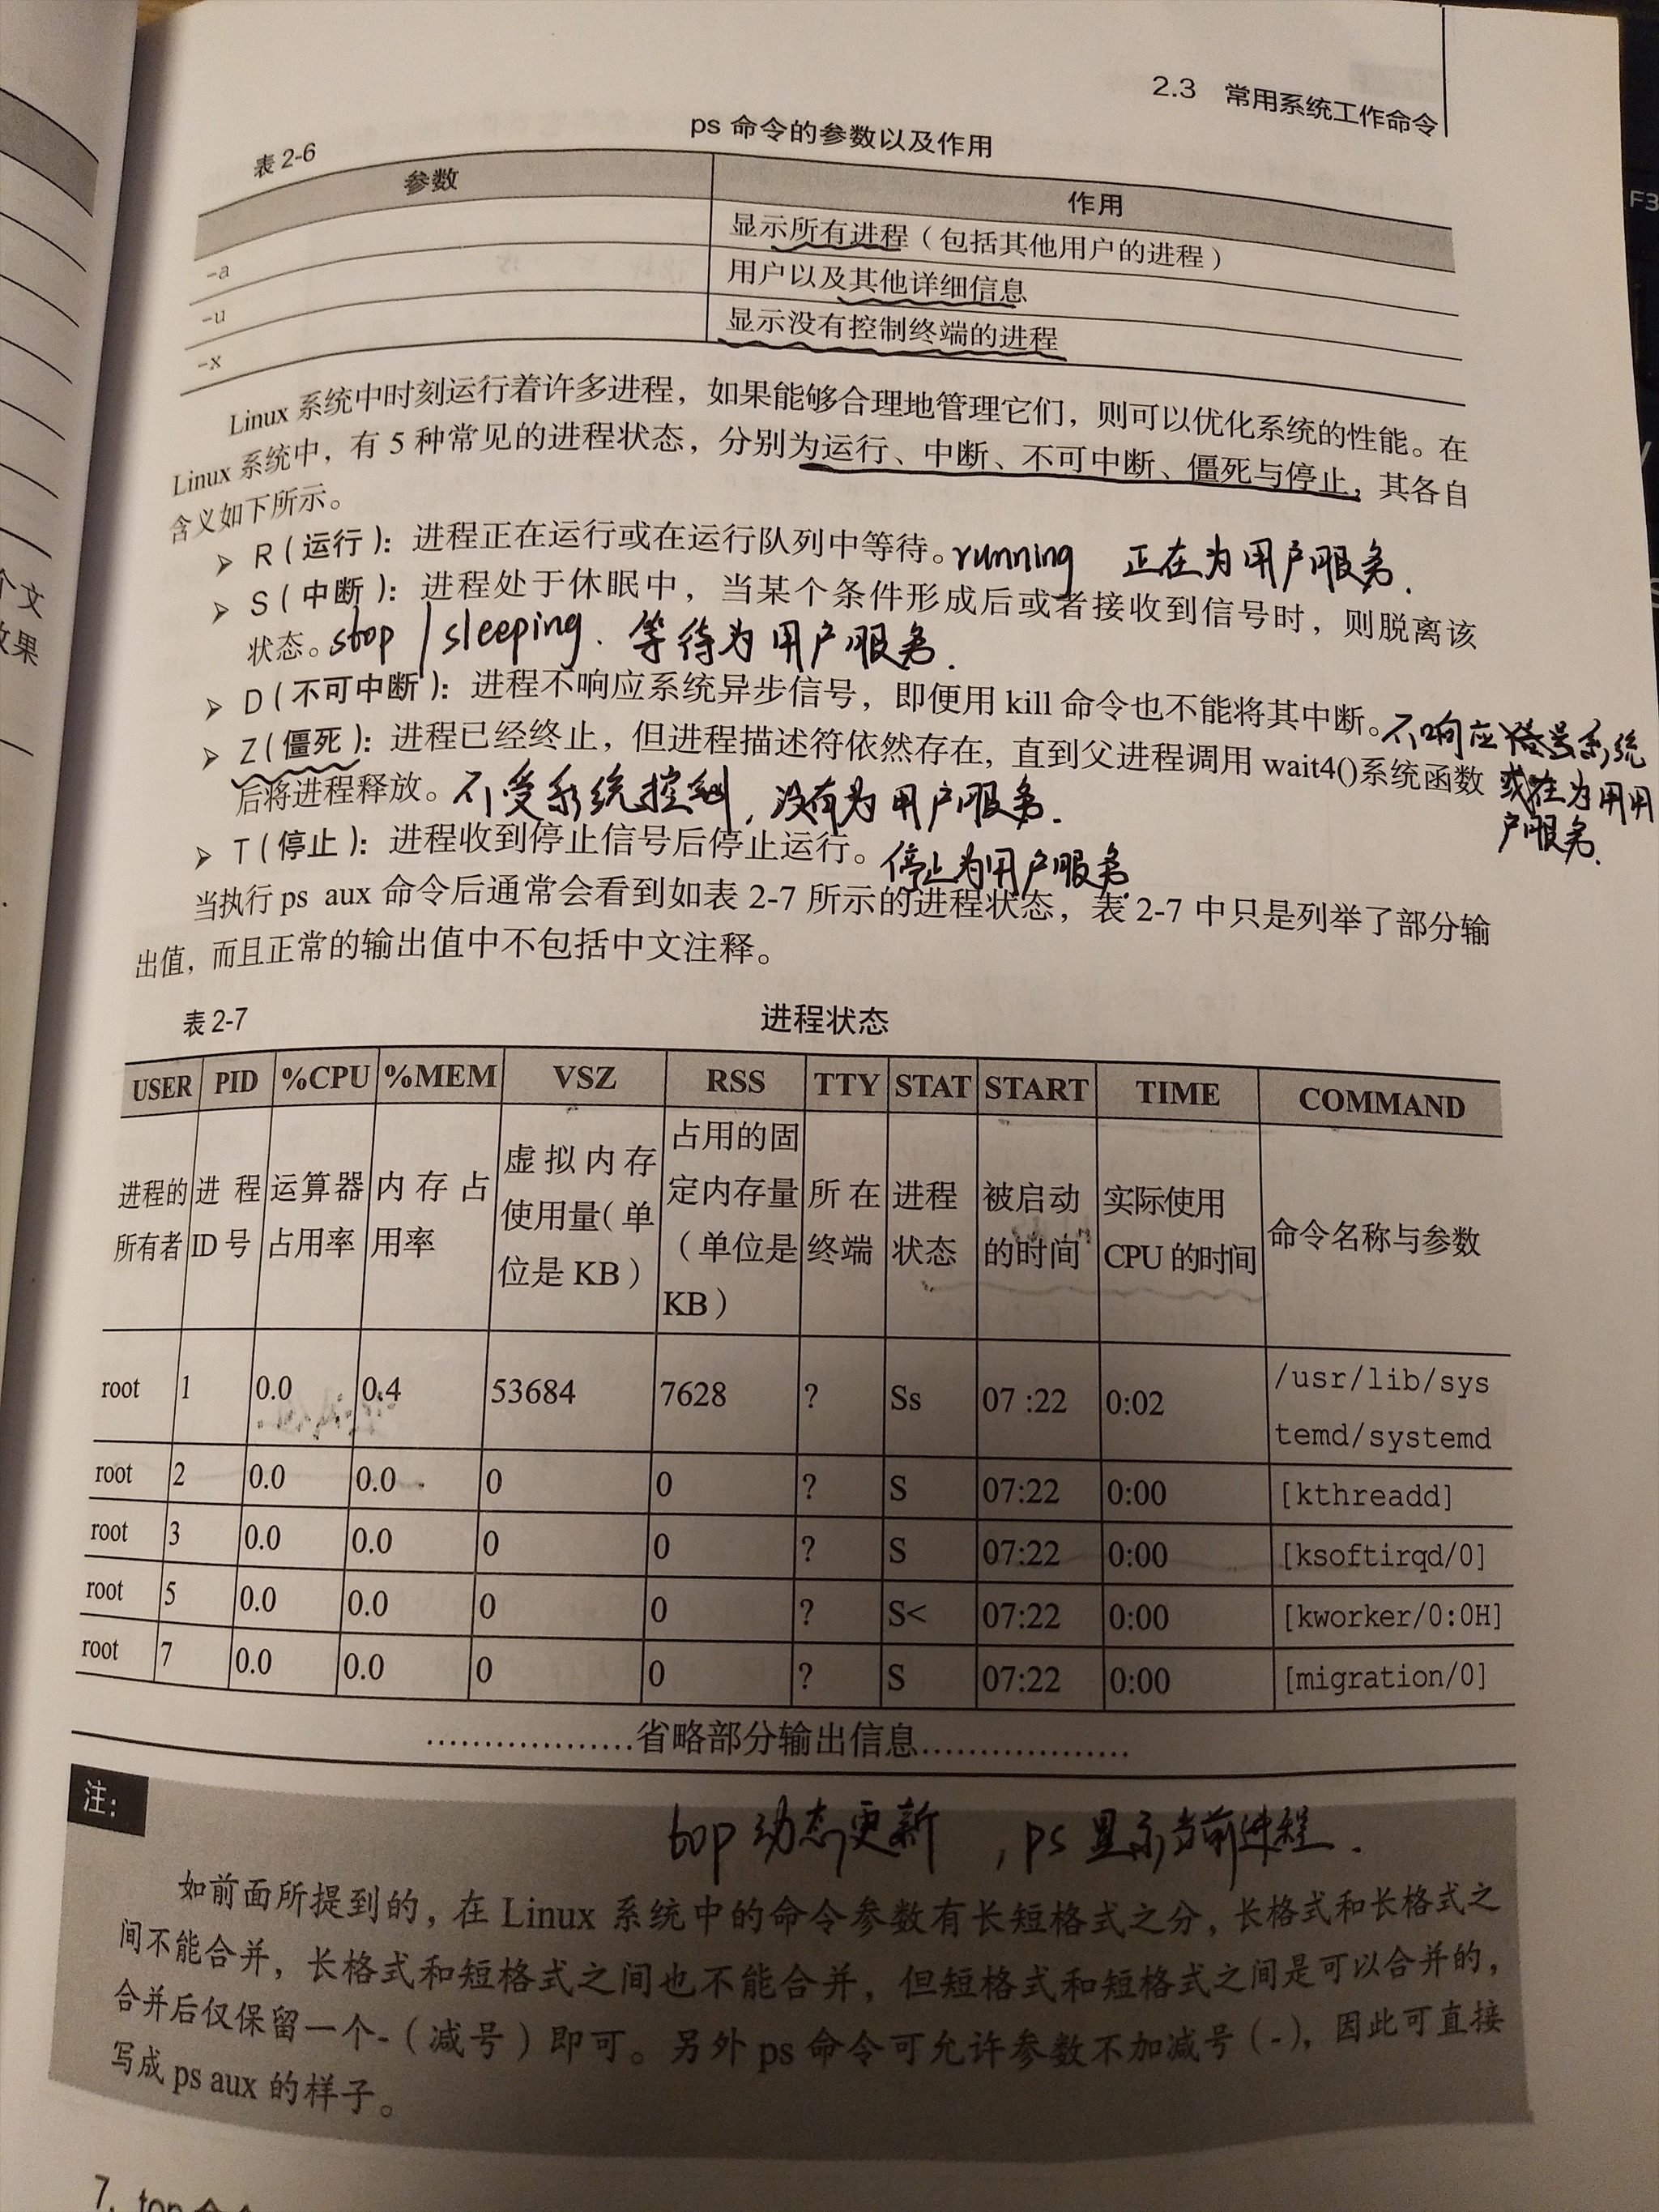 2.3 常用系统工作命令
表 2-6
ps 命令的参数以及作用
参数
作用
-a
显示所有进程（包括其他用户的进程）
-u
用户以及其他详细信息
-x
显示没有控制终端的进程
Linux 系统中时刻运行着许多进程，如果能够合理地管理它们，则可以优化系统的性能。在
Linux 系统中，有 5 种常见的进程状态，分别为运行、中断、不可中断、僵死与停止，其各自
含义如下所示。
➢ R（运行）：进程正在运行或在运行队列中等待。running 正在为用户服务.
➢ S（中断）：进程处于休眠中，当某个条件形成后或者接收到信号时，则脱离该
状态。stop / sleeping. 等待为用户服务.
➢ D（不可中断）：进程不响应系统异步信号，即便用 kill 命令也不能将其中断。不响应
系统
➢ Z（僵死）：进程已经终止，但进程描述符依然存在，直到父进程调用 wait4()系统函数
在为用用
后将进程释放。不受系统控制，没有为用户服务.
户服务.
➢ T（停止）：进程收到停止信号后停止运行。停止为用户服务.
当执行 ps aux 命令后通常会看到如表 2-7 所示的进程状态，表 2-7 中只是列举了部分输
出值，而且正常的输出值中不包括中文注释。
表 2-7
进程状态
USER PID %CPU %MEM VSZ RSS TTY STAT START TIME COMMAND
进程的所有者 进程ID 号 运算器占用率 内存占用率 虚拟内存使用量（单位是 KB） 占用的固定内存量（单位是KB） 所在终端 进程状态 被启动的时间 实际使用CPU 的时间 命令名称与参数
root 1 0.0 0.4 53684 7628 ? Ss 07 :22 0:02 /usr/lib/sys
temd/systemd
root 2 0.0 0.0 0 0 ? S 07:22 0:00 [kthreadd]
root 3 0.0 0.0 0 0 ? S 07:22 0:00 [ksoftirqd/0]
root 5 0.0 0.0 0 0 ? S< 07:22 0:00 [kworker/0:0H]
root 7 0.0 0.0 0 0 ? S 07:22 0:00 [migration/0]
………………省略部分输出信息………………
注：
top 动态更新，ps 显示当前进程.
如前面所提到的，在 Linux 系统中的命令参数有长短格式之分，长格式和长格式之
间不能合并，长格式和短格式之间也不能合并，但短格式和短格式之间是可以合并的，
合并后仅保留一个-（减号）即可。另外 ps 命令可允许参数不加减号（-），因此可直接
写成 ps aux 的样子。
个文
效果
F3